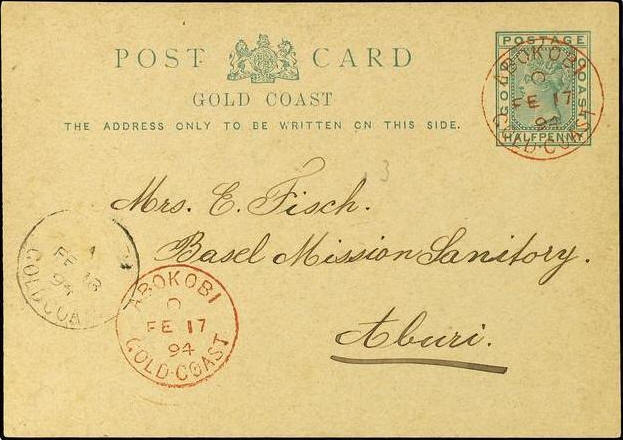 POST CARD
GOLD COAST
THE ADDRESS ONLY TO BE WRITTEN ON THIS SIDE.
POSTAGE
GOLD COAST
HALFPENNY
ABOKOBI
O
FE 17
94
GOLD-COAST
3
Mrs. E. Fisch.
Basel Mission Sanitory.
Aburi.
FE 18
94
GOLD COAST
ABOKOBI
O
FE 17
94
GOLD-COAST